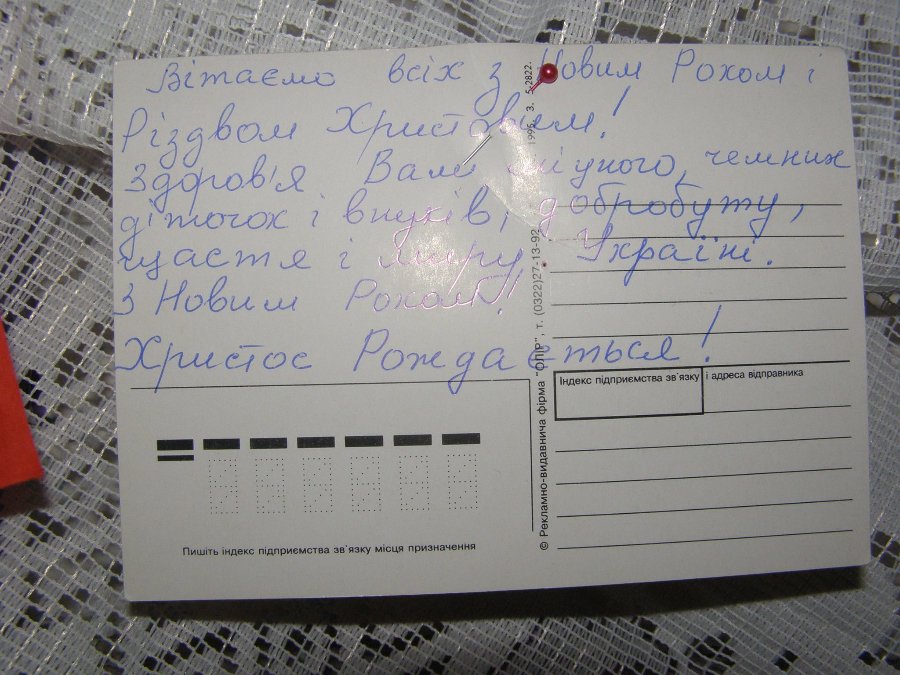 Вітаємо всіх з Новим Роком і
Різдвом Христовим!
Здоров'я Вам, чемних
діточок і внуків, добробуту,
щастя і миру Україні.
З Новим Роком!
Христос Рождається!
Індекс підприємства зв'язку і адреса відправника
Пишіть індекс підприємства зв'язку місця призначення
© Рекламно-видавнича фірма "ОЛІР", т. (0322)27-13-92.
1995. З. 5-2822.